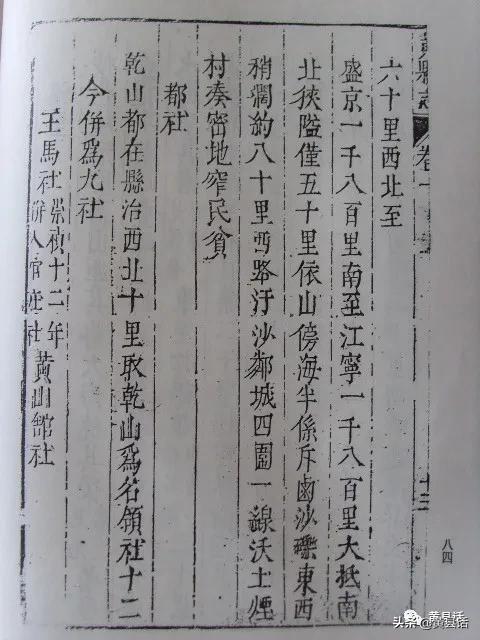 縣志 卷一
六十里西北至
盛京一千八百里南至江寧一千八百里大抵南
北狹隘僅五十里依山傍海半係斥鹵沙礫東西
稍濶約八十里西路汙沙鄰城四圍一線沃土煙
村奏密地窄民貧
都社
乾山都在縣治西北十里取乾山爲名領社十二
今併爲九社
王馬社 崇禎十二年併入官庄社 黃山館社
八四
黄县话
头条 @黄县话